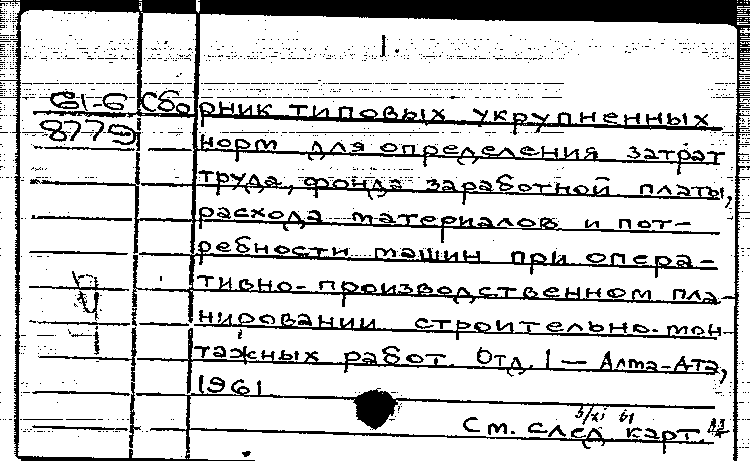 1.
61-6 Сборник типовых укрупненных
8779 норм для определения затрат
труда, фонда заработной платы,
расхода материалов и пот-
ребности машин при опера-
тивно-производственном пла-
нировании строительно-мон-
тажных работ. Отд. 1 — Алма-Ата,
1961
3/XI 61
См. след карт.